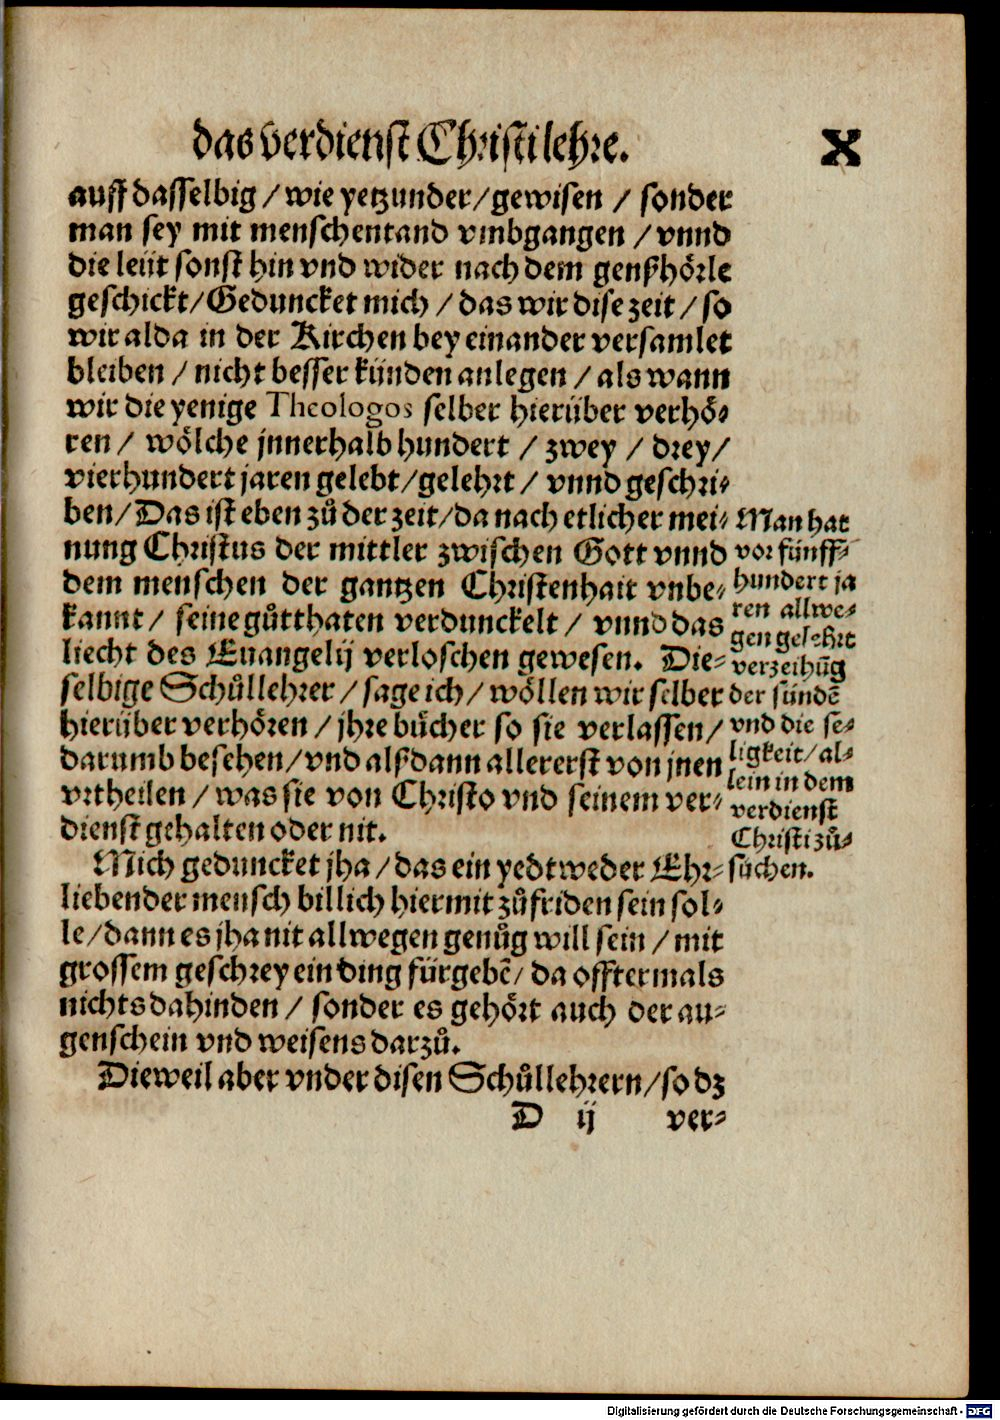 das verdienst Christi lehre. X
auff dasselbig / wie yetzunder / gewisen / sonder
man sey mit menschentand vmbgangen / vnnd
die leüt sonst hin vnd wider nach dem genßhörle
geschickt / Geduncket mich / das wir dise zeit / so
wir alda in der Kirchen bey einander versamlet
bleiben / nicht besser künden anlegen / als wann
wir die yenige Theologos selber hierüber verhö-
ren / wölche jnnerhalb hundert / zwey / drey /
vierhundert jaren gelebt / gelehrt / vnnd geschri-
ben / Das ist eben zů der zeit / da nach etlicher mei-
nung Christus der mittler zwischen Gott vnnd
dem menschen der gantzen Christenhait vnbe-
kannt / seine gůtthaten verdunckelt / vnnd das
liecht des Euangelij verloschen gewesen. Die-
selbige Schůllehrer / sage ich / wöllen wir selber
hierüber verhören / jhre bůcher so sie verlassen /
darumb besehen / vnd alßdann allererst von jnen
vrtheilen / was sie von Christo vnd seinem ver-
dienst gehalten oder nit.
Man hat
vor fünff-
hundert ja
ren allwe-
gen gelehrt
verzeihūg
der sündē
vnd die se-
ligkeit / al-
lein in dem
verdienst
Christi zů-
sůchen.
Mich geduncket jha / das ein yedtweder Ehr-
liebender mensch billich hiermit zůfriden sein sol-
le / dann es jha nit allwegen genůg will sein / mit
grossem geschrey ein ding fürgebē / da offtermals
nichts dahinden / sonder es gehört auch der au-
genschein vnd weisens darzů.
Dieweil aber vnder disen Schůllehrern / so dz
D ij ver-
Digitalisierung gefördert durch die Deutsche Forschungsgemeinschaft - DFG